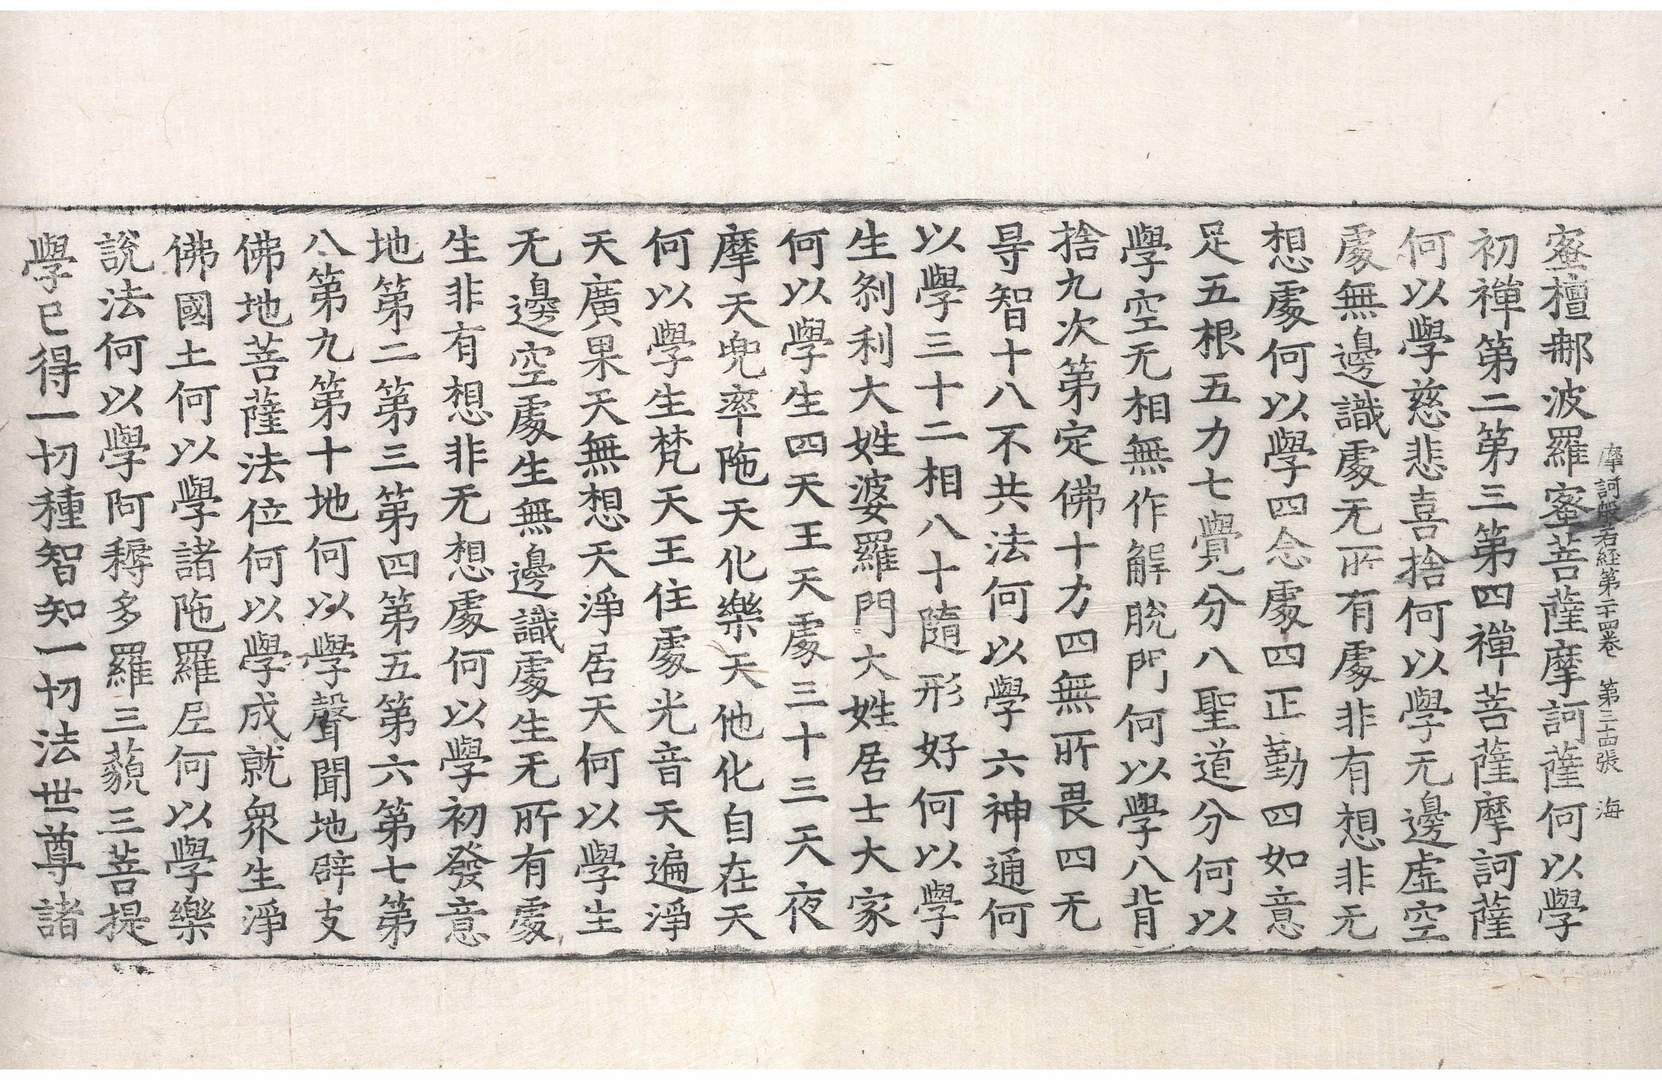 摩訶般若經第二十四卷　第三十四張　海
蜜檀那波羅蜜菩薩摩訶薩何以學
初禪第二第三第四禪菩薩摩訶薩
何以學慈悲喜捨何以學无邊虛空
處無邊識處无所有處非有想非无
想處何以學四念處四正勤四如意
足五根五力七覺分八聖道分何以
學空无相無作解脫門何以學八背
捨九次第定佛十力四無所畏四无
㝵智十八不共法何以學六神通何
以學三十二相八十隨形好何以學
生刹利大姓婆羅門大姓居士大家
何以學生四天王天處三十三天夜
摩天兜率陁天化樂天他化自在天
何以學生梵天王住處光音天遍淨
天廣果天無想天淨居天何以學生
无邊空處生無邊識處生无所有處
生非有想非无想處何以學初發意
地第二第三第四第五第六第七第
八第九第十地何以學聲聞地辟支
佛地菩薩法位何以學成就衆生淨
佛國土何以學諸陁羅尼何以學樂
說法何以學阿耨多羅三藐三菩提
學已得一切種智知一切法世尊諸